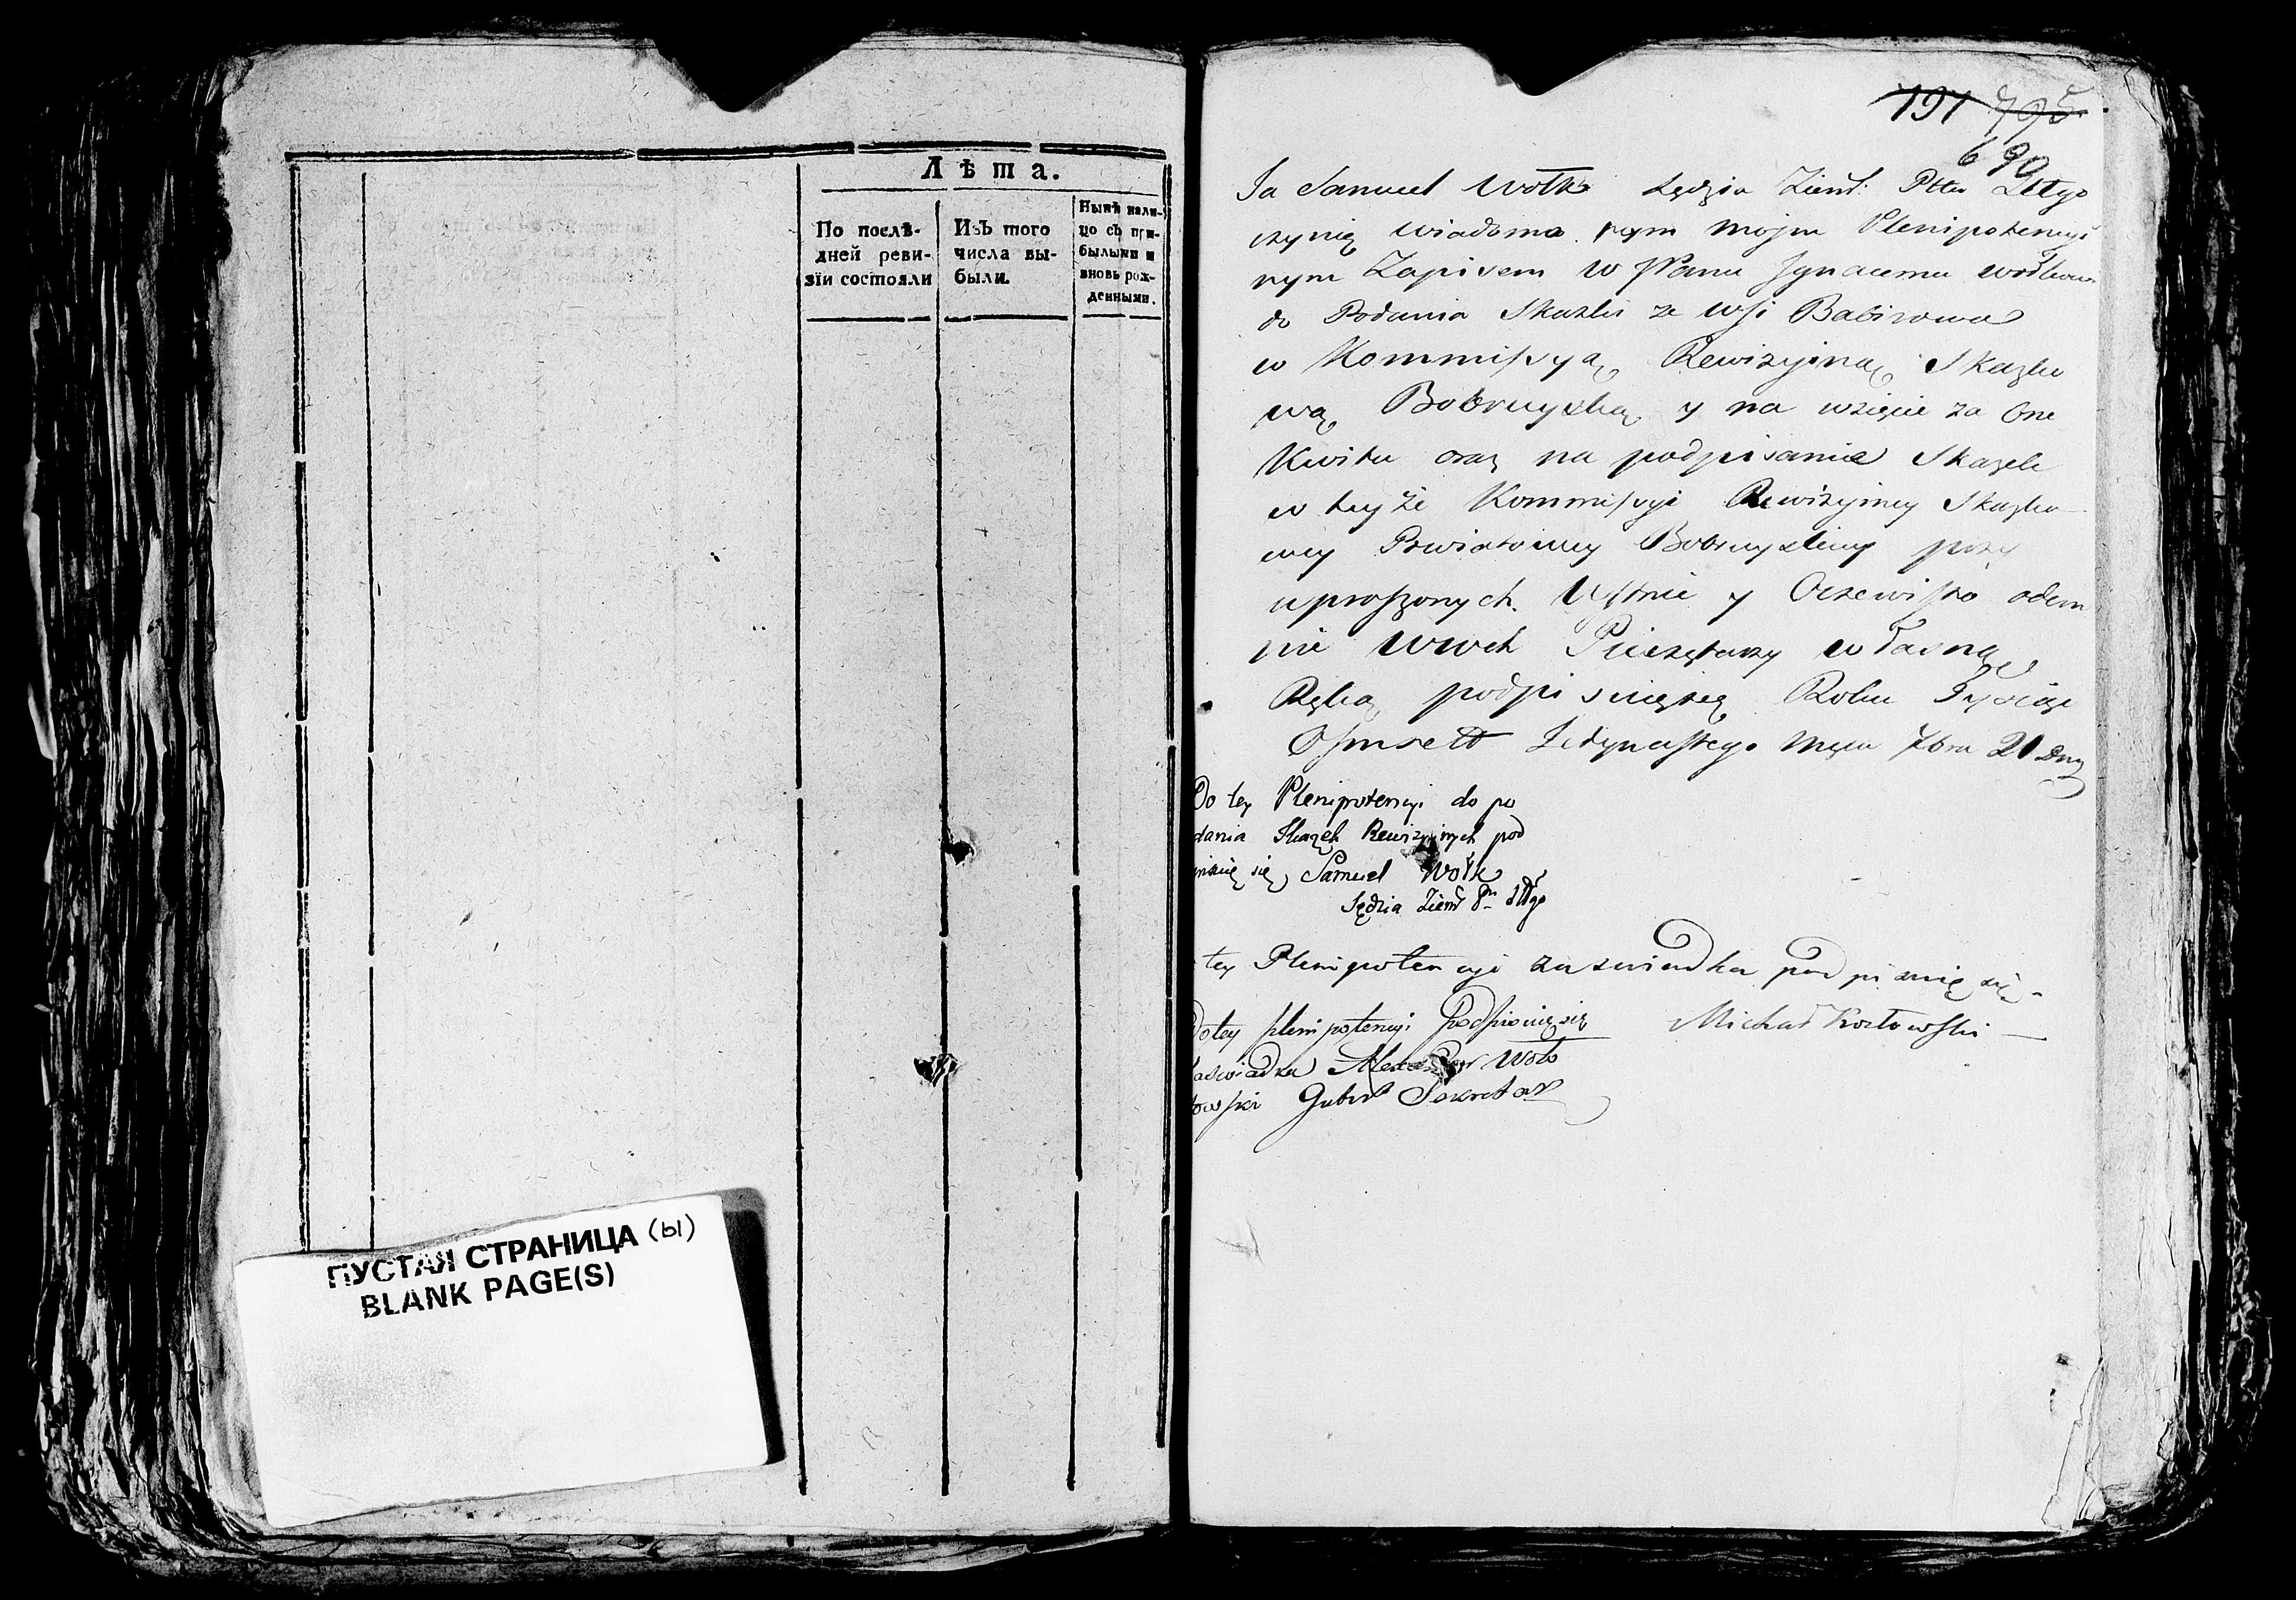 Лѣта.
По послѣ-
дней реви-
зіи состояли
Изъ того
числа вы-
были.
Нынѣ нали-
цо съ при-
былыми и
вновь рож-
денными.
ПУСТАЯ СТРАНИЦА (ы)
BLANK PAGE(S)
191 795
690
Ja Samuel Wołk Sędzia Ziem: Pttu
czynię wiadomo tym mojm Plenipotencyi
nym Zapisem W JPanu Jgnacemu
do Podania Skazki ze wsi Babirowa
w Kommissyą Rewizyjną Skazko
wą Bobruyską y na wzięcie za One
Kwitu oraz na podpisanie Skazek
w teyże Kommissyi Rewizyiney Skazko
wey Powiatowey Bobruyskiey przy
uproszonych Ustnie y Oczewisto odem
nie WWch Pieczętarzy własną
Ręką podpisuięsię Roku Tysiąc
Osmset Jedynastego Mca 7bra 21 Dnia
Do tey Plenipotencyi do po
dania Skazek Rewizyjnych pod
pisuię się Samuel Wołk
Sędzia Ziem
tey Plenipotencyi za swiadka podpisuię się
Michał Kozłowski
Do tey plenipotencyi Podpisuię się
zaswiadka Alexander Woło
towski Guber Sekretar